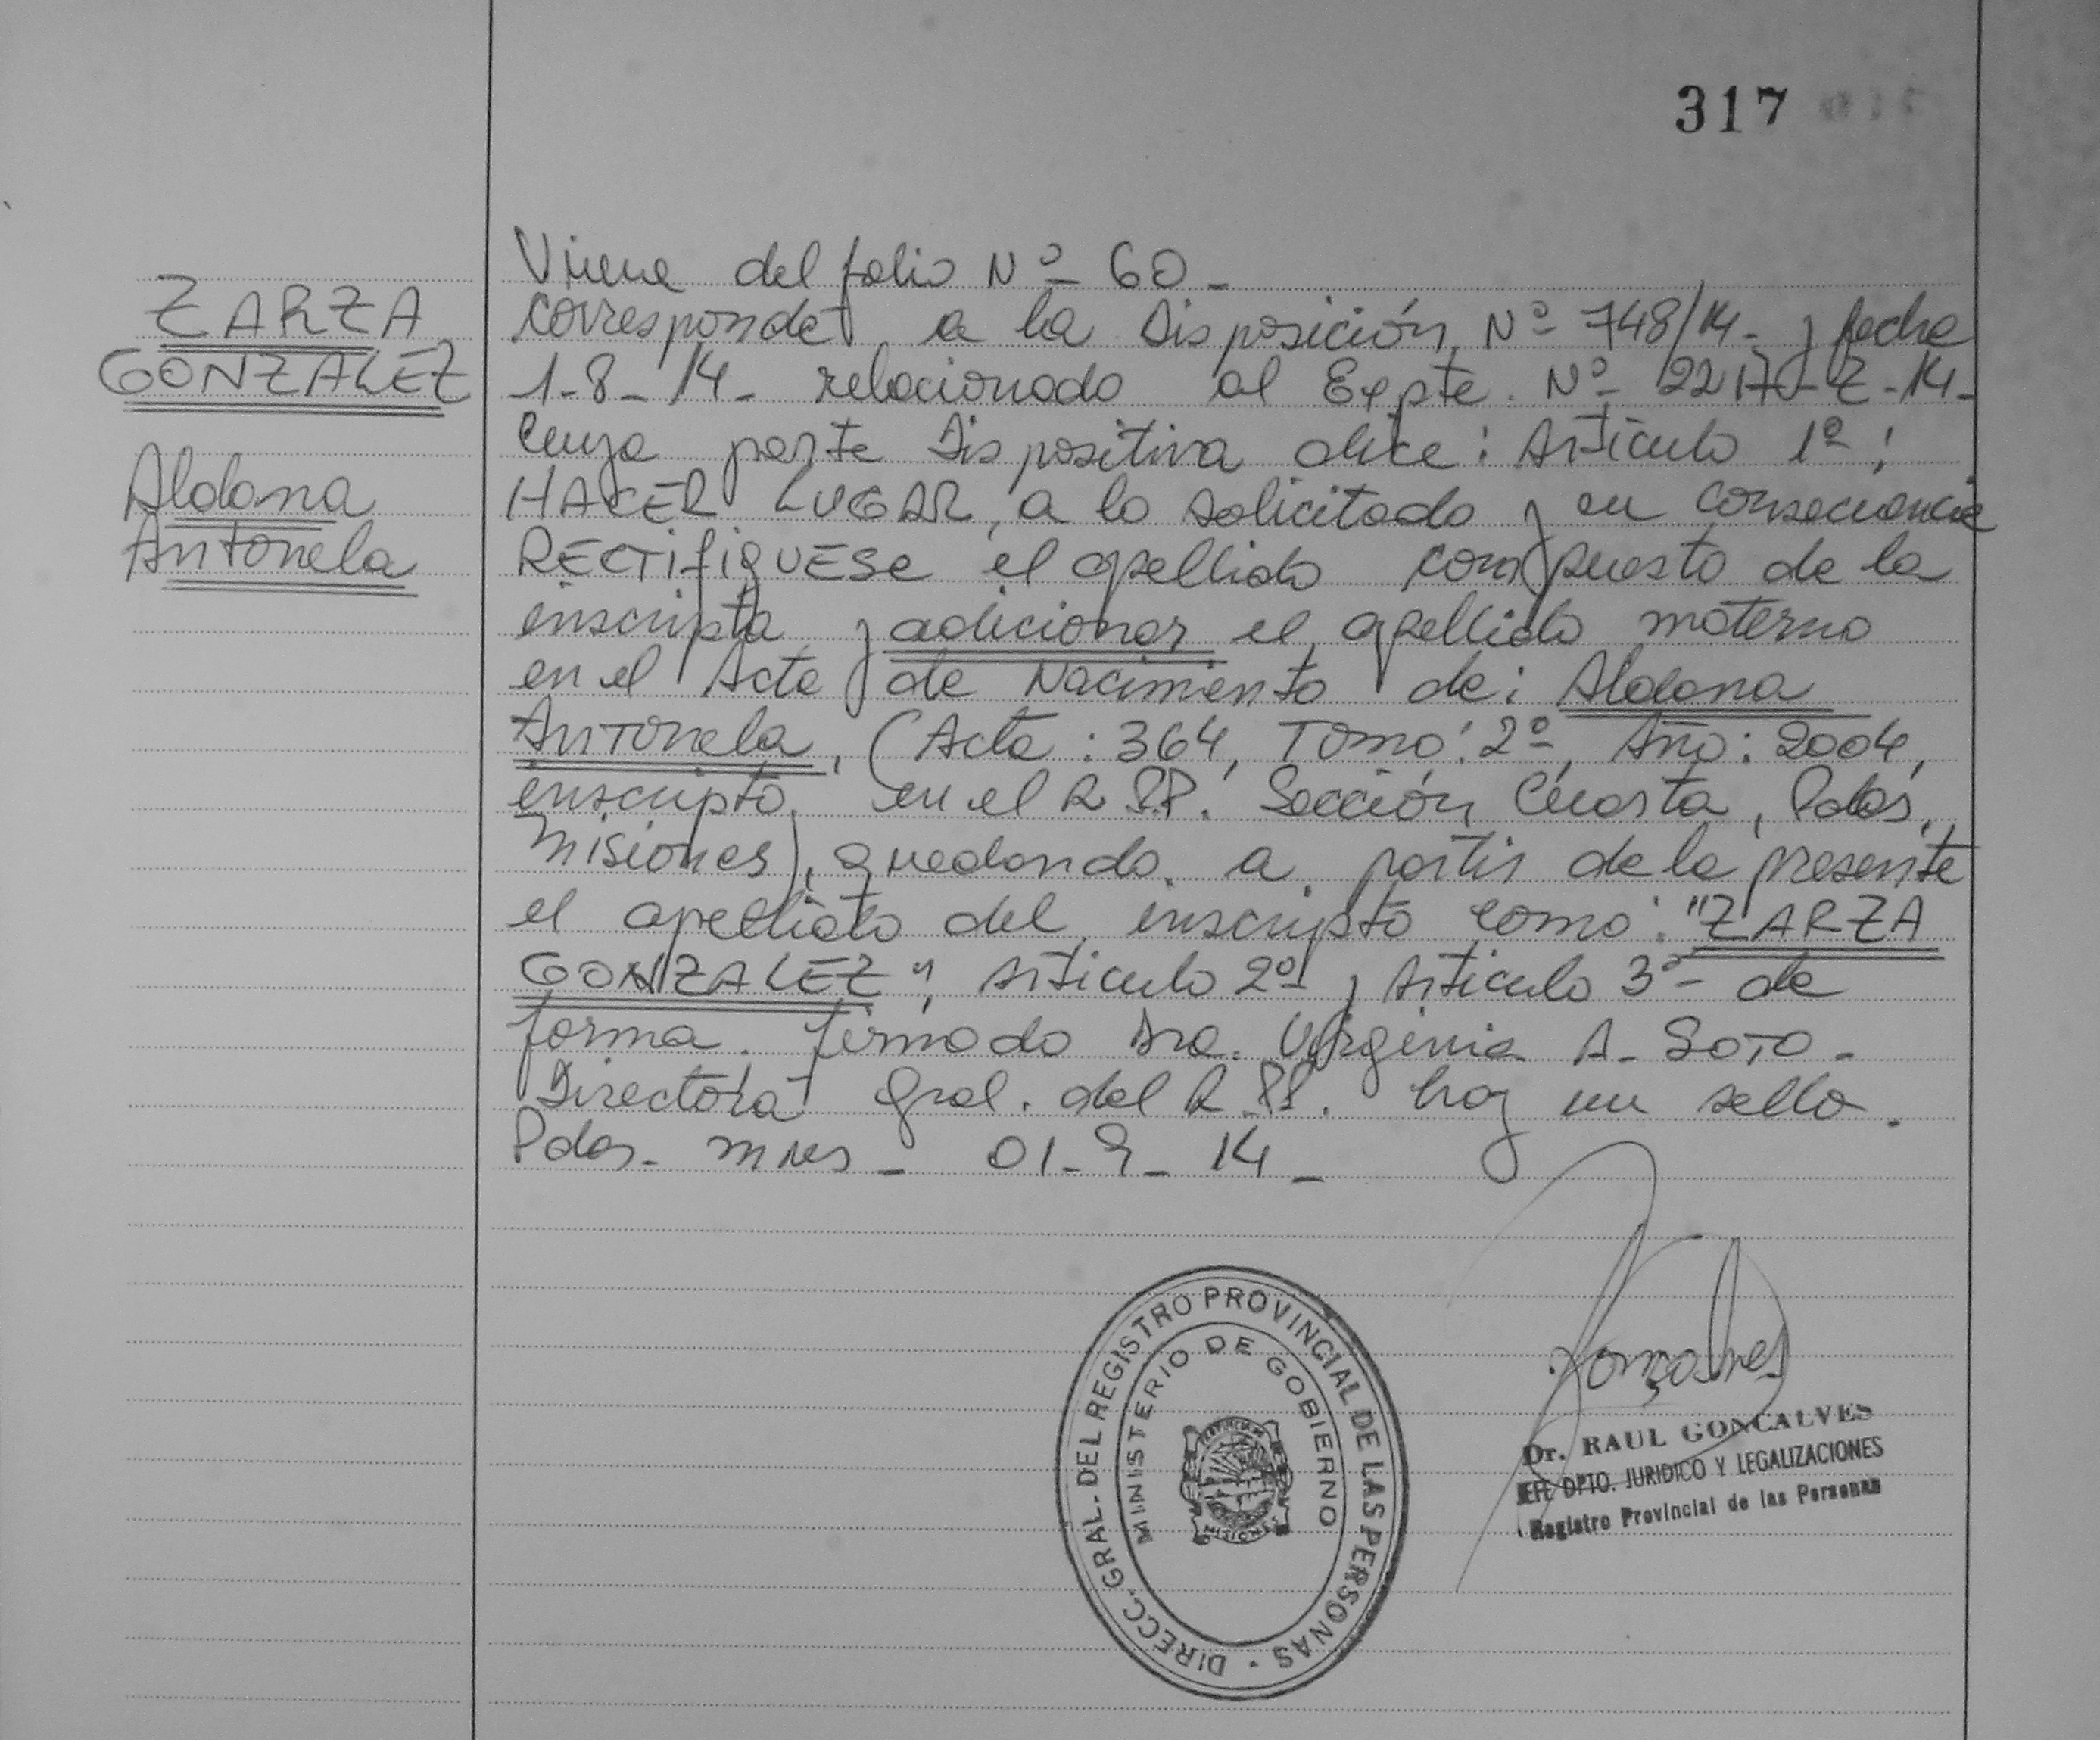 317
ZARZA
GONZALEZ
Aldana
Antonela
Viene del folio Nº 60 -
corresponde a la Disposición Nº 748/14 - y fecha
1-8-14- relacionado al Expte. Nº 2217-Z-14-
Cuya parte Dispositiva dice: Artículo 1º:
HACER LUGAR, a lo solicitado y en consecuencia
RECTIFIQUESE el apellido compuesto de la
inscripta y adicionar el apellido materno
en el Acta de Nacimiento de: Aldana
Antonela, (Acta: 364, Tomo: 2º, Año: 2004,
inscripta en el R.P.P. Sección Cuarta, Pdas,
Misiones), quedando a partir de la presente
el apellido del inscripto como: "ZARZA
GONZALEZ", Artículo 2º y Artículo 3º de
forma. firmado Dra. Virginia A. SOTO -
Directora Gral. del R.P.P. hay un sello.
Pdas. Mnes - 01-9-14 -
DIRECC. GRAL. DEL REGISTRO PROVINCIAL DE LAS PERSONAS
MINISTERIO DE GOBIERNO
MISIONES
Gonçalves
Dr. RAUL GONCALVES
JEFE DPTO. JURIDICO Y LEGALIZACIONES
Registro Provincial de las Personas